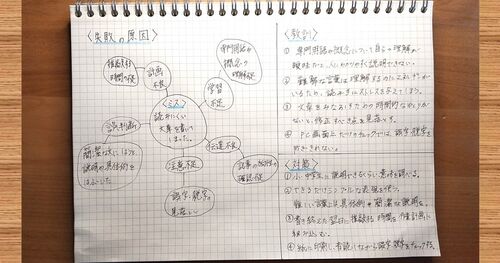 〈失敗の原因〉
専門用語や
概念の
理解不足
推敲する
時間の不足
計画
不足
学習
不足
〈ミス〉
読みにくい
文章を書いて
しまった。
誤判断
簡潔な文にしようと
説明の具体例を
はぶいた
注意不足
伝達不足
記事の
確認不足
誤字・脱字の
見落とし
〈教訓〉
① 専門用語の概念について自らの理解が
曖昧だと、人にわかりやすく説明できない。
② 難解な言葉は理解する力に
読み手にストレスを与えてしまう。
③ 文章をみなおすための時間的なゆとりが
ないと、修正すべき点を見落とす。
④ PC画面上だけのチェックでは、誤字・脱字を
防ぎきれない。
〈対策〉
① 小・中学生に説明できるくらい意味を調べる。
② できるだけシンプルな表現を使う。
難しい言葉には具体例や簡潔な説明を。
③ 書き終えた翌日に推敲する時間を作業計画に
組み込む。
④ 紙に印刷し、音読しながら誤字・脱字をチェックする。